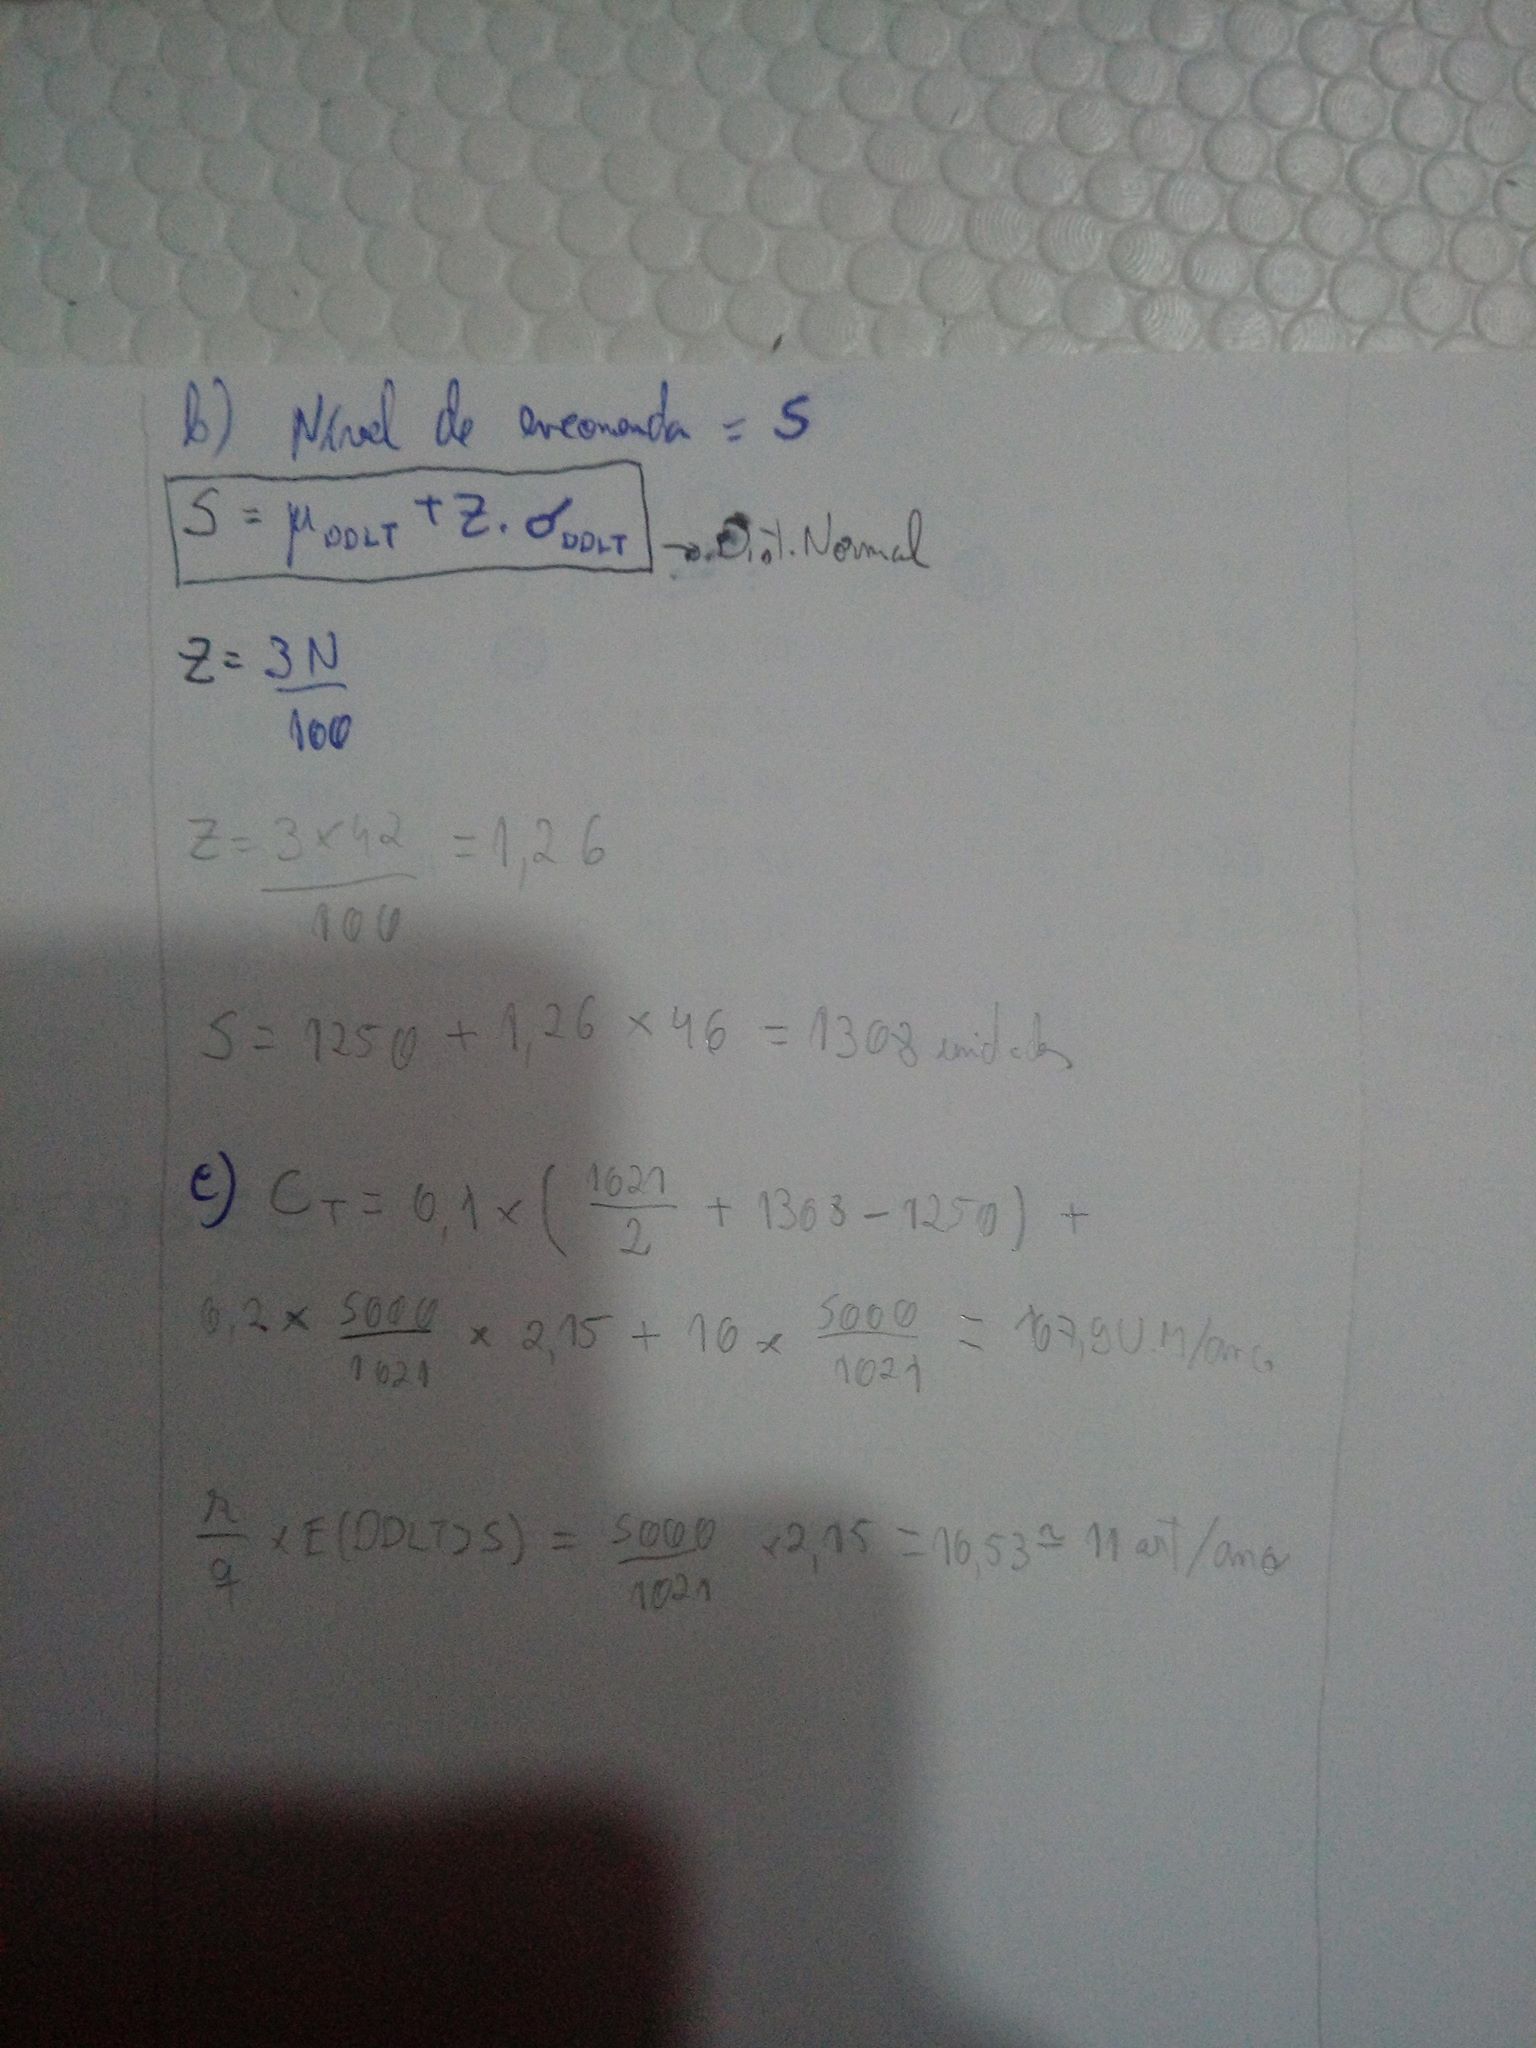 b) Nível de encomenda = S
S = μDDLT + Z. σDDLT → Dist. Normal
Z = 3N
100
Z = 3 x 42 = 1,26
100
S = 1250 + 1,26 x 46 = 1308 unidades
c) CT = 0,1 x ( 1021 / 2 + 1308 - 1250 ) +
0,2 x 5000 / 1021 x 2,15 + 10 x 5000 / 1021 = 107,9 U.M/ano
r / q x E(DDLT>S) = 5000 / 1021 x 2,15 = 10,53 ≃ 11 art/ano